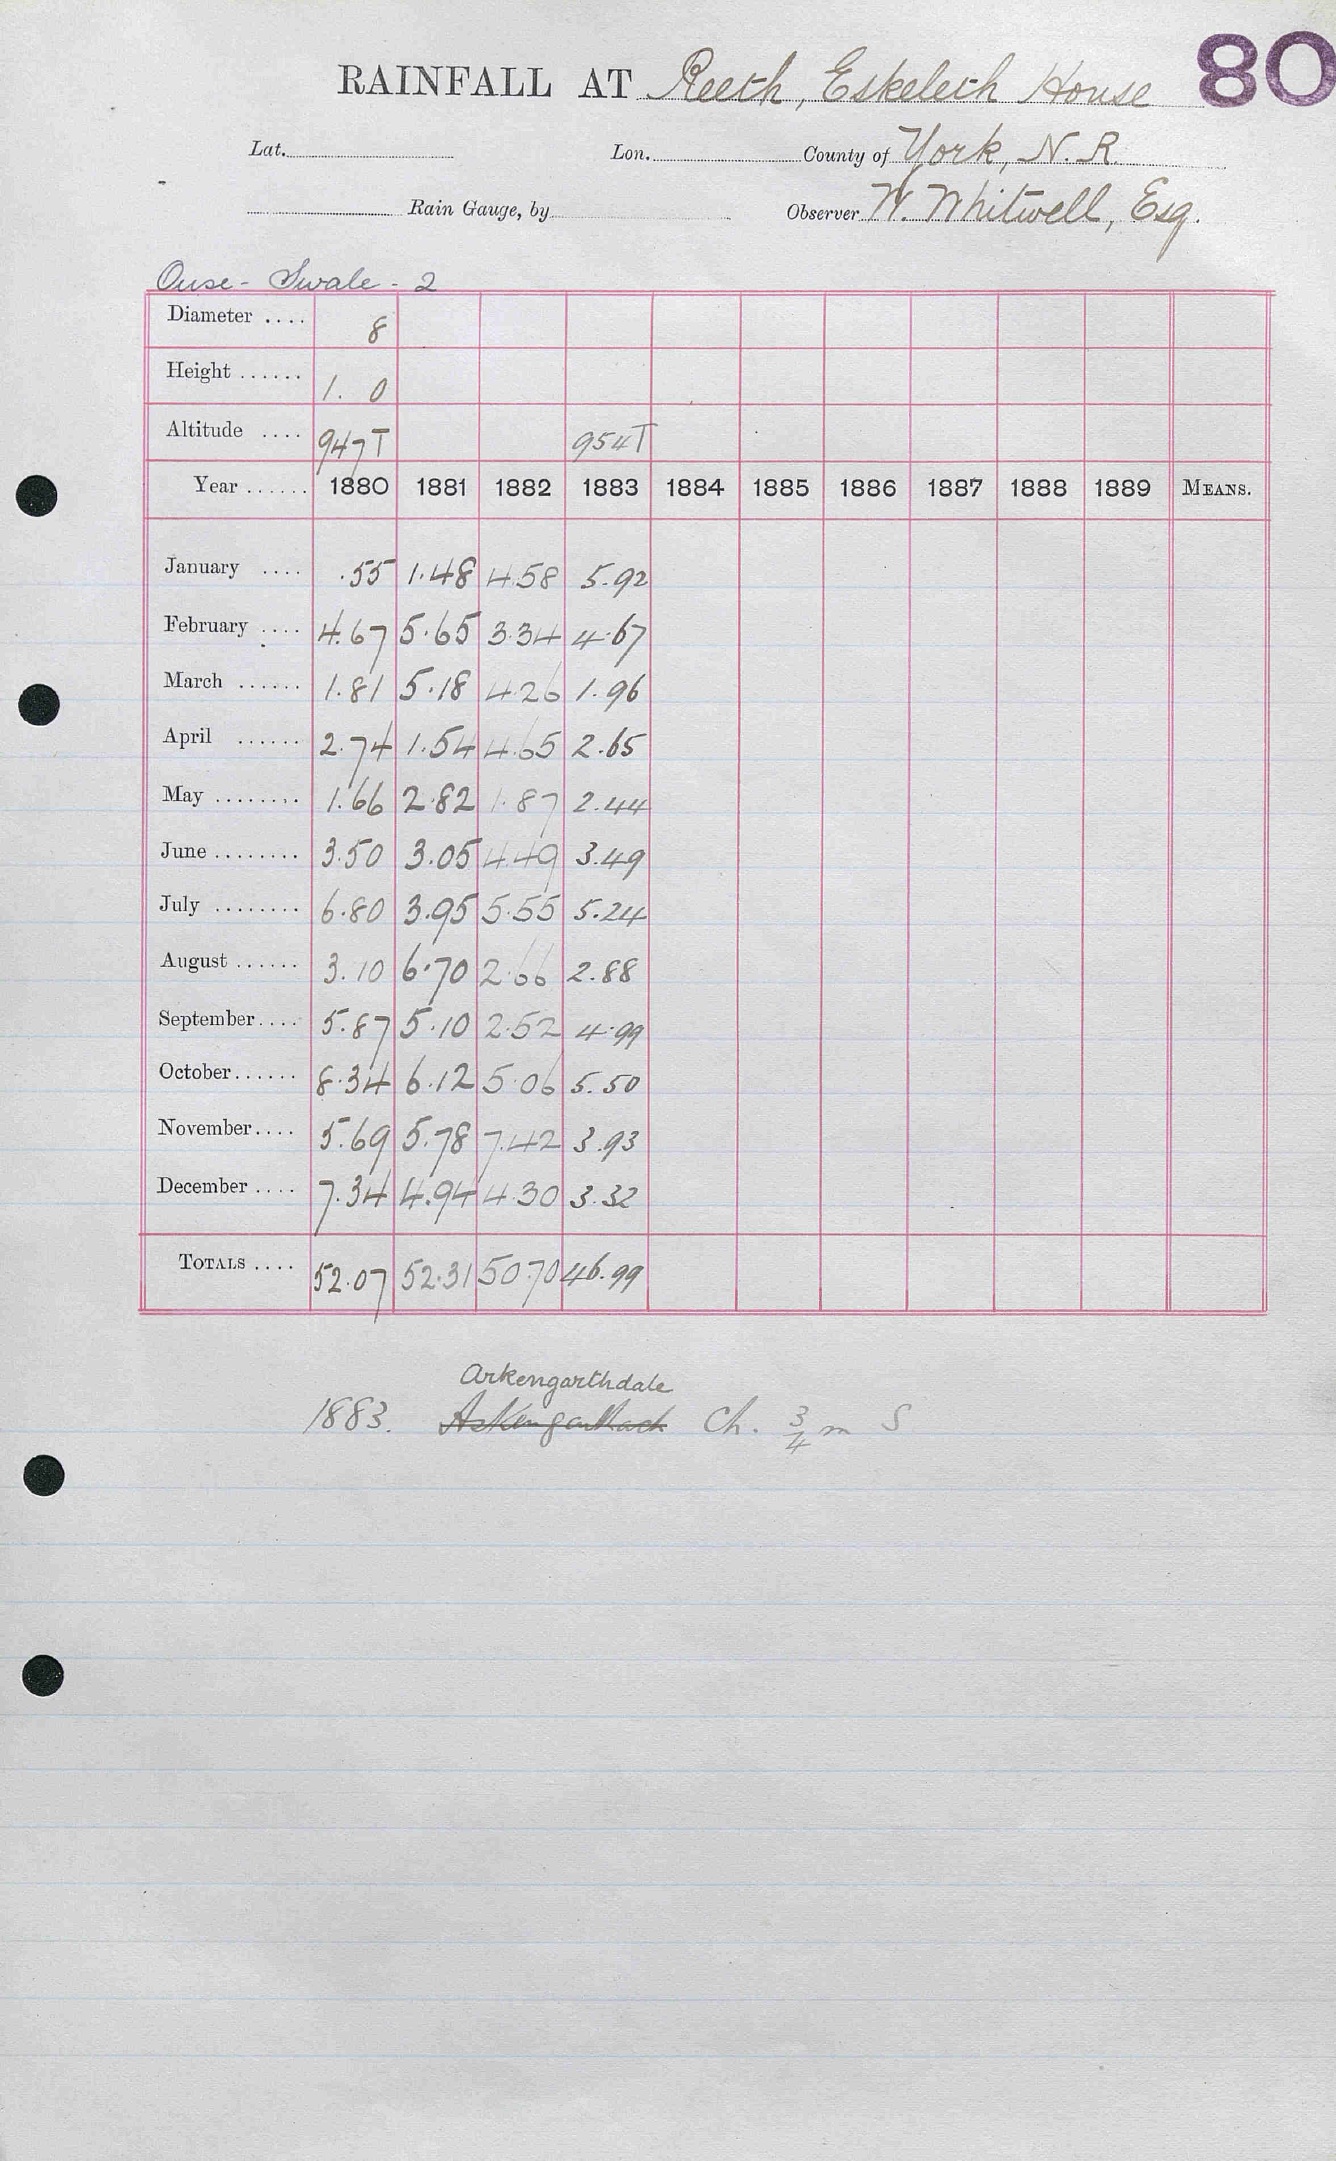 RAINFALL AT Reeth, Eskeleth House 80
Lat. Lon. County of York, N.R
Rain Gauge, by Observer W. Whitwell, Esq.
Ouse - Swale - 2
Diameter .... 8
Height ...... 1. 0
Altitude .... 947T 954T
Year ...... 1880 1881 1882 1883 1884 1885 1886 1887 1888 1889 MEANS.
January .... .55 1.48 4.58 5.92
February .... 4.67 5.65 3.34 4.67
March ...... 1.81 5.18 4.26 1.96
April ...... 2.74 1.54 4.65 2.65
May ........ 1.66 2.82 1.87 2.44
June ........ 3.50 3.05 4.49 3.49
July ........ 6.80 3.95 5.55 5.24
August ...... 3.10 6.70 2.66 2.88
September.... 5.87 5.10 2.52 4.99
October...... 8.34 6.12 5.06 5.50
November.... 5.69 5.78 7.42 3.93
December .... 7.34 4.94 4.30 3.32
TOTALS .... 52.07 52.31 50.70 46.99
Arkengarthdale
1883. Ch. 3/4 m S